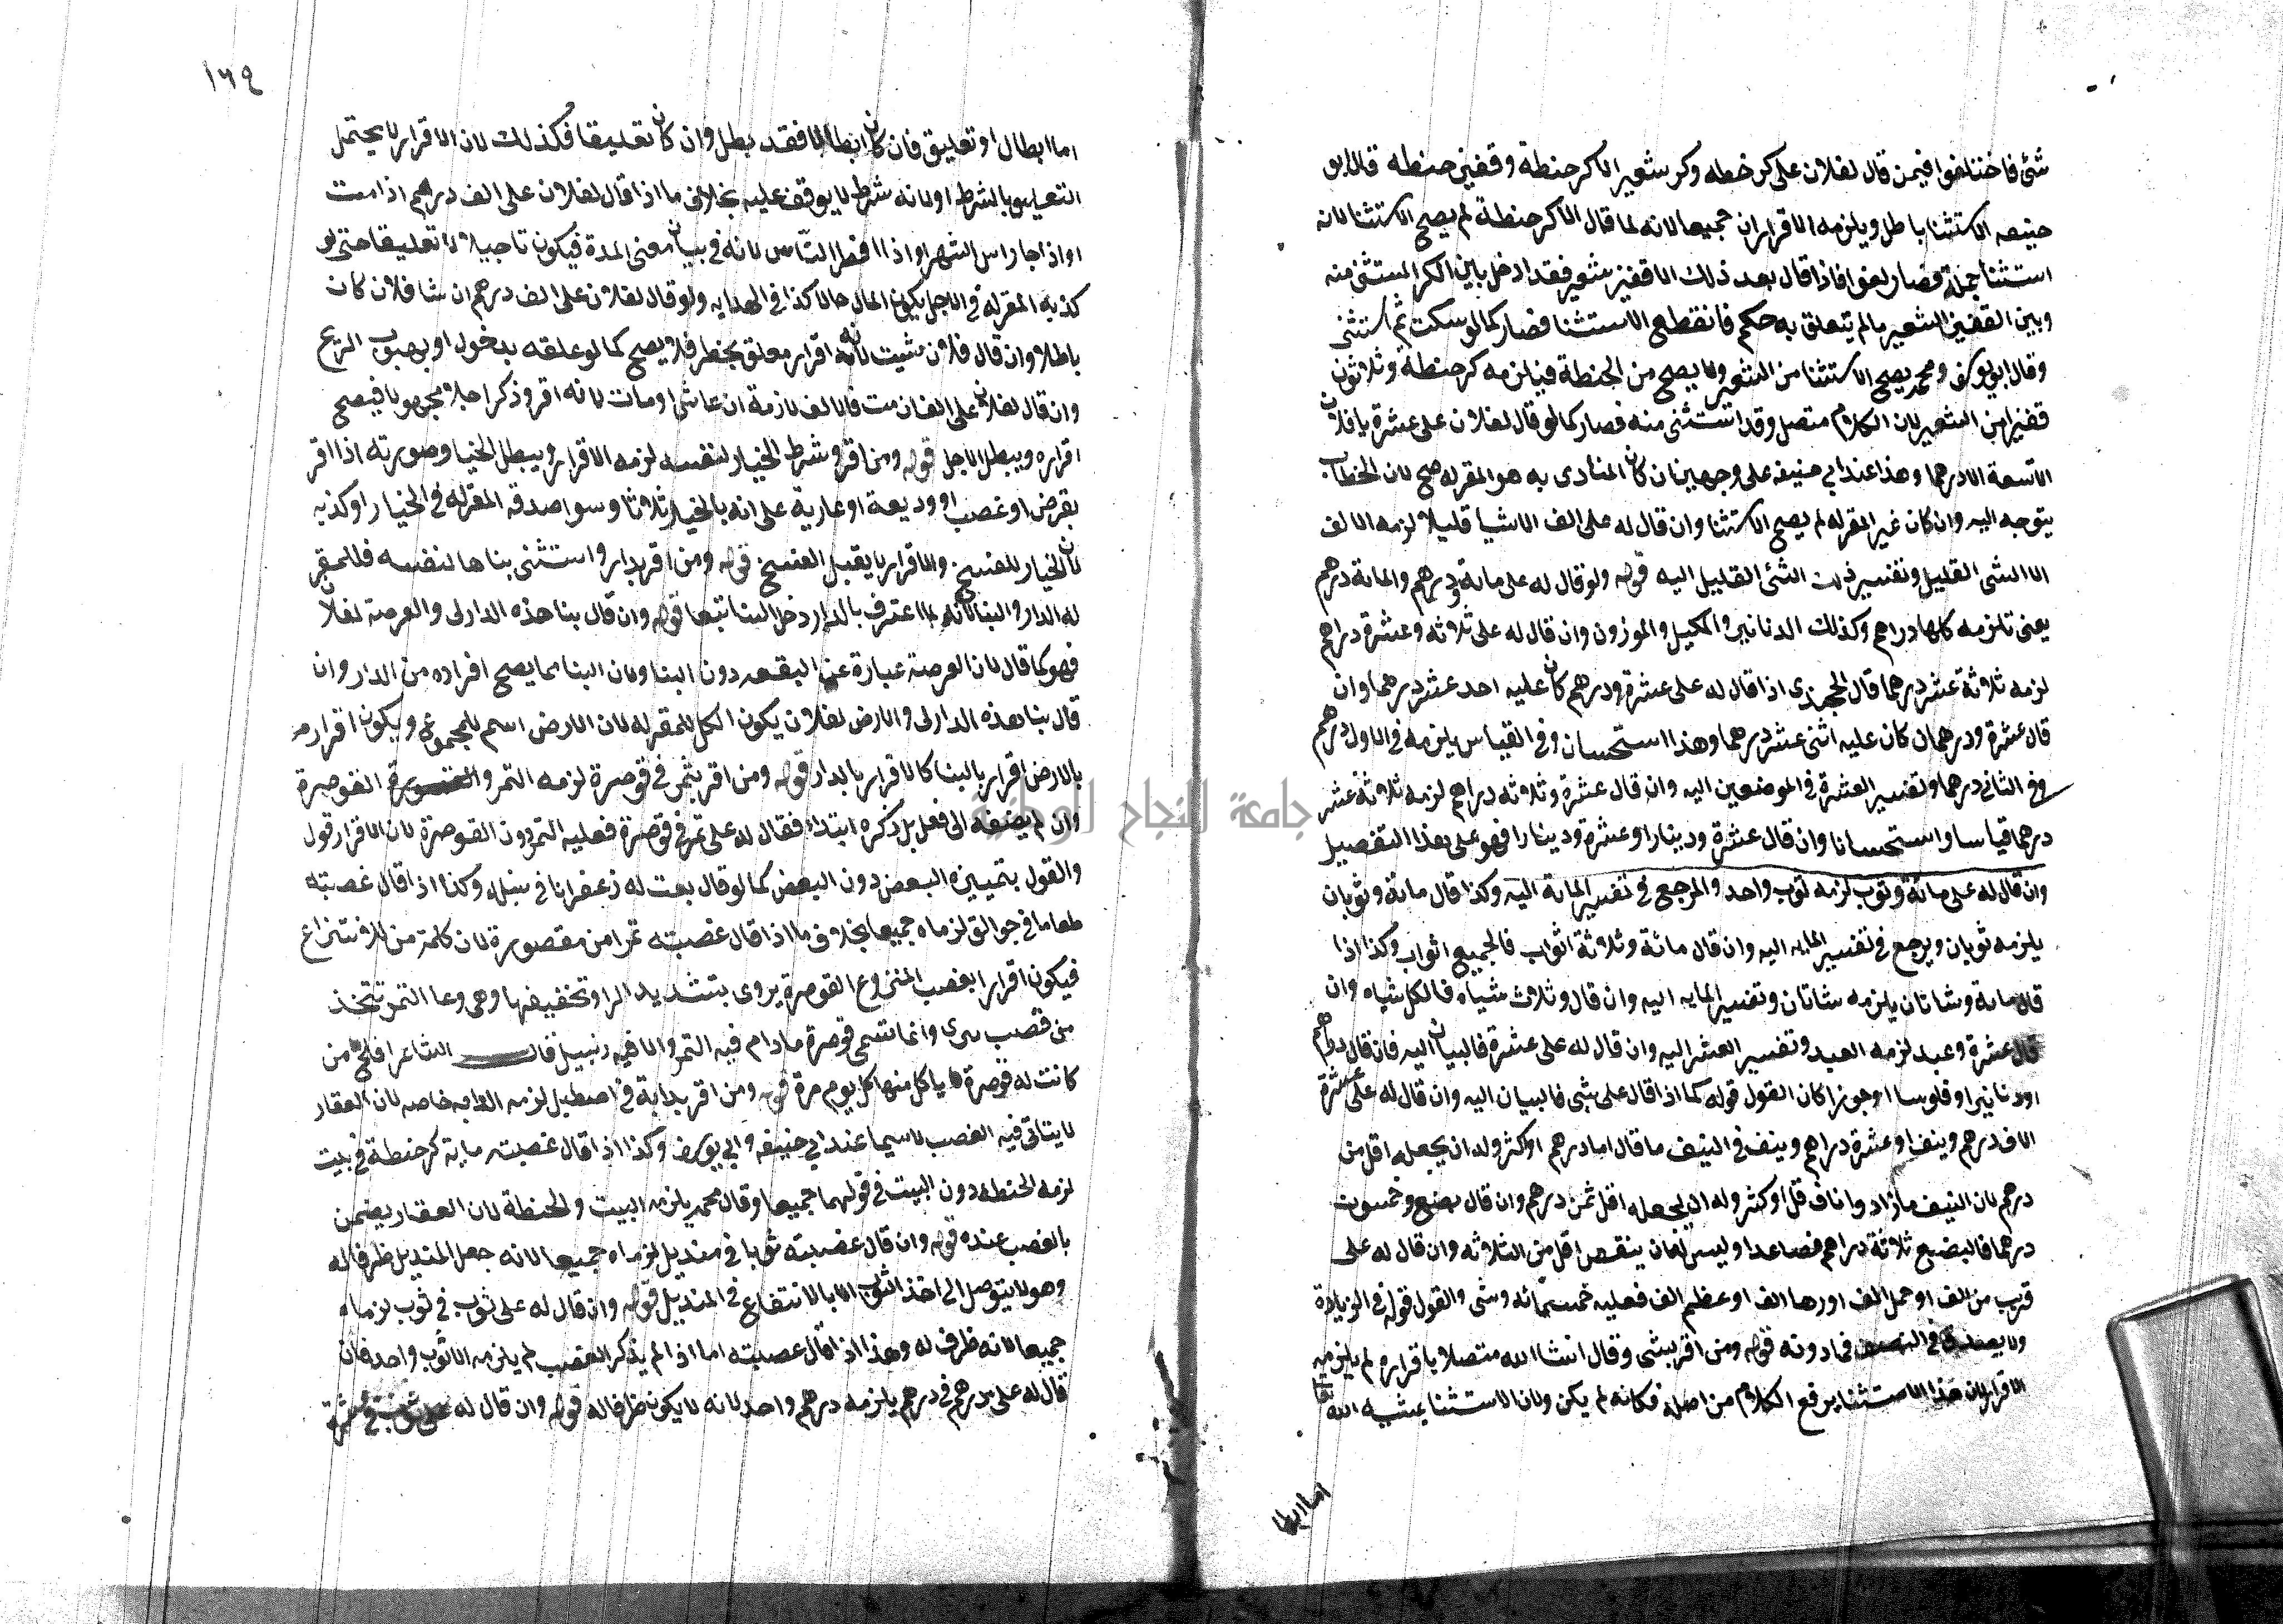 شئ فاختلفوا فيمن قال لفلان على كر حنطه وكر شعير الا كر حنطة وقفيز حنطه قال ابو
حنيفه الاستثنا باطل ويلزمه الاقراران جميعا لانه لما قال الا كر حنطة لم يصح الاستثنا لانه
استثنا جملة فصار لغوا فاذا قال بعد ذلك الا قفيز شعير فقد ادخل بين الكر المستثنى منه
وبين القفيز الشعير ما لم يتعلق به حكم فانقطع الاستثنا فصار كما لو سكت ثم استثنى
وقال ابو يوسف ومحمد يصح الاستثنا من الشعير ولا يصح من الحنطة فيلزمه كر حنطة وثلاثون
قفيزا من الشعير لان الكلام متصل وقد استثنى منه فصار كما لو قال لفلان على عشرة يا فلان
الا تسعة الا درهما وهذا عند ابي حنيفه على وجهين ان كان المنادى به هو المقر له صح لان الخطاب
يتوجه اليه وان كان غير المقر له لم يصح الاستثنا وان قال له على الف الا شيا قليلا لزمه الالف
الا الشى القليل وتفسير ذلك الشئ القليل اليه قوله ولو قال له على ماية ودرهم والماية درهم
يعنى تلزمه كلها دراهم وكذلك الدنانير والمكيل والموزون وان قال له على ثلاثه وعشرة دراهم
لزمه ثلاثة عشر درهما قال الخجندى اذا قال له على عشرة ودرهم كان عليه احد عشر درهما وان
قال عشرة ودرهمان كان عليه اثنى عشر درهما وهذا استحسان وفى القياس يلزمه فى الاول درهم
وفى الثانى درهما وتفسير العشرة فى الموضعين اليه وان قال عشرة وثلاثه دراهم لزمه ثلاثة عشر
درهما قياسا واستحسانا وان قال عشرة ودينارا وعشرة ودينارا فهو على هذا التفصيل
وان قال له على مائة وثوب لزمه ثوب واحد والمرجع فى تفسير الماية اليه وكذا قال مائة وثوبان
يلزمه ثوبان ويرجع فى تفسير المايه اليه وان قال مائة وثلاثة اثواب فالجميع اثواب وكذا اذا
قال ماية وشاتان يلزمه شاتان وتفسير المايه اليه وان قال وثلاث شياه فالكل شياه وان
قال عشرة وعبد لزمه العبد وتفسير العشر اليه وان قال له على عشرة فالبيان اليه فان قال دراهم
او دنانير او فلوسا او جوزا كان القول قوله كما اذا قال على شى فالبيان اليه وان قال له على عشرة
الاف درهم ونيف او عشرة دراهم ونيف فى النيف ما قال اما درهم او اكثر وله ان يجعله اقل من
درهم لان النيف ما زاد واناف قل او كثر وله ان يجعله اقل من درهم وان قال بضع وخمسون
درهما فالبضع ثلاثة دراهم فصاعدا وليس له ان ينقص اقل من الثلاثه وان قال له على
قريب من الف او جل الف او رها الف او عظيم الف فعليه خمسمائه وشى والقول قوله فى الزيادة
ولا يصدق فى فما دونه قوله ومن اقر بشى وقال انشا الله متصلا باقراره لم يلزمه
الاقرار لان هذا الاستثنا يرفع الكلام من اصله فكانه لم يكن ولان الاستثنا بمشيه الله تعا
اما ابطا
١٦٩
اما ابطال او تعليق فان كان ابطالا فقد بطل وان كان تعليقا فكذلك لان الاقرار لا يحتمل
التعليق بالشرط او لانه شرط لا يوقف عليه بخلاف ما اذا قال لفلان على الف درهم اذا مت
او اذا جا راس الشهر او اذا افطر الناس لانه فى بيان معنى المدة فيكون تاجيلا لا تعليقا حتى لو
كذبه المقر له فى الاجل يكون المال حالا كذا فى الهدايه ولو قال لفلان على الف درهم ان شا فلان كان
باطلا وان قال فلان شيت لانه اقرار معلق بخطر فلا يصح كما لو علقه بدخول او بهبوب الريح
وان قال لفلان على الف ان مت فالالف لازمة ان عاش او مات لانه اقر وذكر اجلا مجهولا فيصح
اقراره ويبطل الاجل قوله ومن اقر وشرط الخيار لنفسه لزمه الاقرار ويبطل الخيار وصورته اذا اقر
بقرض او غصب او وديعة او عارية على انه بالخيار ثلاثا وسوا صدقه المقر له فى الخيار او كذبه
لان الخيار للفسخ والاقرار لا يقبل الفسخ قوله ومن اقر بدار واستثنى بناها لنفسه فللمقر
له الدار والبنا لانه لما اعترف بالدار دخل البنا تبعا قوله وان قال بنا هذه الدار لى والعرصة لفلان
فهو كما قال لان العرصة عبارة عن البقعه دون البنا ولان البنا مما يصح افراده من الدار وان
قال بنا هذه الدار لى والارض لفلان يكون الكل للمقر له لان الارض اسم للمجموع ويكون اقراره
بالارض اقرار بالبنا كالاقرار بالدار قوله ومن اقر بتمر فى قوصرة لزمه التمر والقوصرة
وان لم يضفه الى فعل بل ذكره ابتداء فقال له على تمر فى قوصرة فعليه التمر دون القوصرة لان الاقرار قول
والقول بتمييزه البعض دون البعض كما لو قال بعت له زعفرانا فى سله وكذا اذا قال غصبته
طعاما فى جوالق لزماه جميعا بخلاف ما اذا قال غصبته تمرا من مقصورة لان كلمة من للانتزاع
فيكون اقرارا بغصب المنزوع القوصرة يروى بتشديد الرا وتخفيفها وهى وعا التمر تتخذ
من قصب وانما تسمى قوصرة ما دام فيه التمر والا فهى زنبيل قال الشاعر افلح من
كانت له قوصرة ياكل منها كل يوم مرة قوله ومن اقر بداية فى اصطبل لزمه الدابه خاصه لان العقار
لا يتاتى فيه الغصب لا سيما عند ابي حنيفه وابي يوسف وكذا اذا قال غصبته ماية كر حنطة فى بيت
لزمه الحنطة دون البيت فى قولهما جميعا وقال محمد يلزمه البيت والحنطة لان العقار يضمن
بالغصب عنده قوله وان قال غصبته ثوبا فى منديل لزماه جميعا لانه جعل المنديل ظرفا له
وهو لا يتوصل الى اخذ الثوب الا بالانتفاع فى المنديل قوله وان قال له على ثوب فى ثوب لزماه
جميعا لانه ظرف له وهذا اذا قال غصبته اما اذا لم يذكر الغصب لم يلزمه الا ثوب واحد فان
قال له على درهم فى درهم يلزمه درهم واحد لانه لا يكون ظرفا له قوله وان قال له على ثوب فى عشرة
جامعة النجاح الوطنية